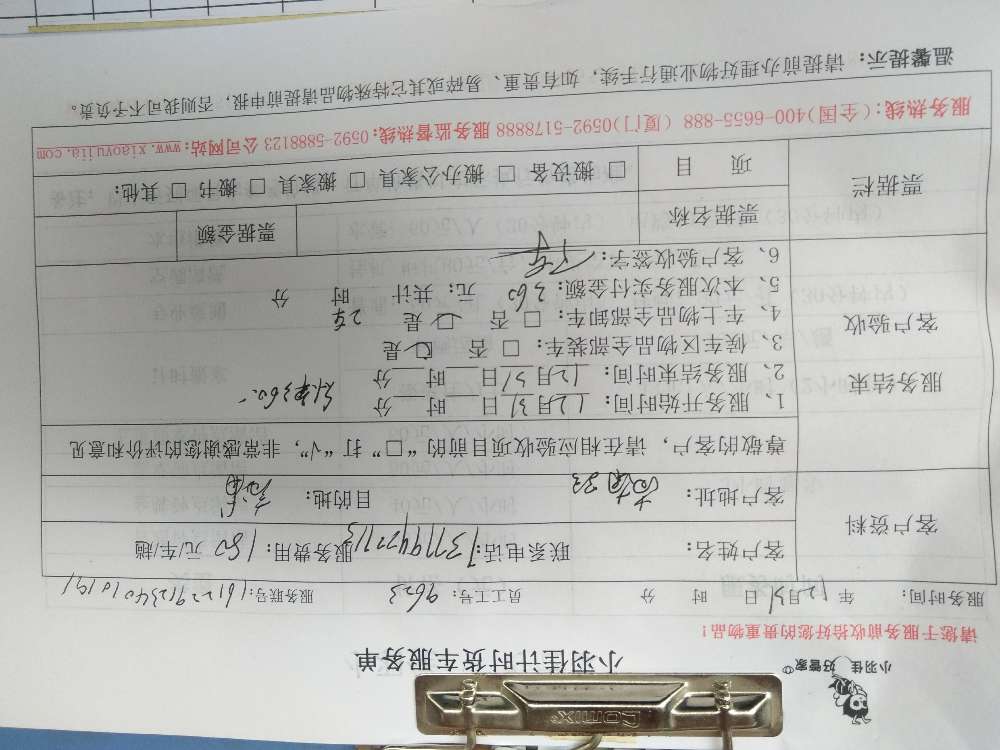 小羽佳 好管家
小羽佳计时货车服务单
请您于服务前收拾好您的贵重物品！
服务时间： 年 12月31日 时 分 员工工号：9623 服务联号：
客户资料
客户姓名： 联系电话： 服务费用：180 元/车/趟
客户地址： 目的地：
尊敬的客户，请在相应验收项目前的“□”打“√”，非常感谢您的评价和意见
服务结束
客户验收
1、服务开始时间：12月31日 时 分
2、服务结束时间：12月31日 时 分
360
3、候车区物品全部装车：□ 否 □ 是
4、车上物品全部卸车：□ 否 □ 是 2车
5、本次服务实付金额：360 元；共计 时 分
6、客户验收签字：
票据栏
票据名称 票据金额
项 目 □ 搬设备 □ 搬办公家具 □ 搬家具 □ 搬书 □ 其他：
服务热线：(全国)400-6655-888 (厦门)0592-5178888 服务监督热线：0592-5888123 公司网站：www.xiaoyujia.com
温馨提示：请提前办理好物业通行手续，如有贵重、易碎或其它特殊物品请提前申报，否则我司不予负责。
Comix